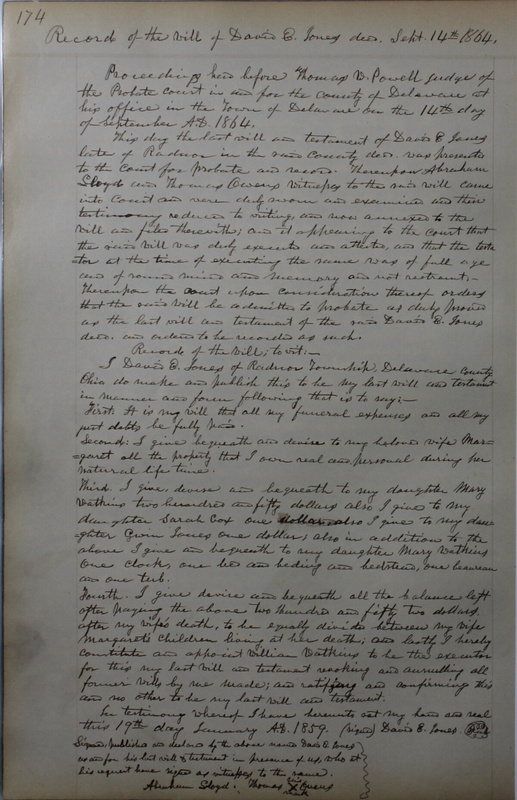 174
Record of the will of David E. Jones decd. Sept. 14th 1864.
Proceedings had before Thomas W. Powell judge of
the Probate Court in and for the County of Delaware at
his office in the Town of Delaware on the 14th day
of September A.D. 1864.
This day the last will and testament of David E Jones
late of Radnor in the said County decd. was presented
to the Court for probate and record. Thereupon Abraham
Lloyd and Thomas Owens witnesses to the said will came
into Court and were duly sworn and examined and their
testimony reduced to writing, and now annexed to the
will and filed therewith; and it appearing to the court that
the said will was duly executed and attested, and that the testa
tor at the time of executing the same was of full age
and of sound mind and memory and not restraint;-
Thereupon the court upon consideration thereof orders
that the said will be admitted to probate as duly proved
as the last will and testament of the said David E. Jones
decd. and ordered to be recorded as such.
Record of the Will; to vit:-
I David E. Jones of Radnor Township Delaware County
Ohio do make and publish this to be my last will and testament
in manner and form following that is to say;-
First. It is my will that all my funeral expenses and all my
just debts be fully paid.
Second: I give bequeath and devise to my beloved wife Mar-
garet all the property that I own real and personal during her
natural life time.
Third. I give, devise and bequeath to my daughter Mary
Watkins two hundred and fifty dollars also I give to my
daughter Sarah Cox one dollar also I give to my dau
ghter Gwin Jones one dollar; also in addition to the
above I give and bequeath to my daughter Mary Watkins
One Clock, one bed and beding and bedstead, one beaureau
and one tub.
Fourth. I give devise and bequeath all the balance left
after paying the above two hundred and fifty two dollars,
after my wife's death, to be equally divided between my wife
Margaret's children living at her death; and lastly I hereby
constitute and appoint William Watkins to be the executor
for this my last will and testament revoking and annulling all
former wills by me made; and ratifying and confirming this
and no other to be my last will and testament.
In testimony whereof I have hereunto set my hand and seal
this 19th day January A.D. 1859. (signed) David E. Jones.
Signed published and declared by the above named David E. Jones
as and for his last will & testament in presence of us, who at
his request have signed as witnesses to the same.
Abraham Lloyd. Thomas his X mark Owens